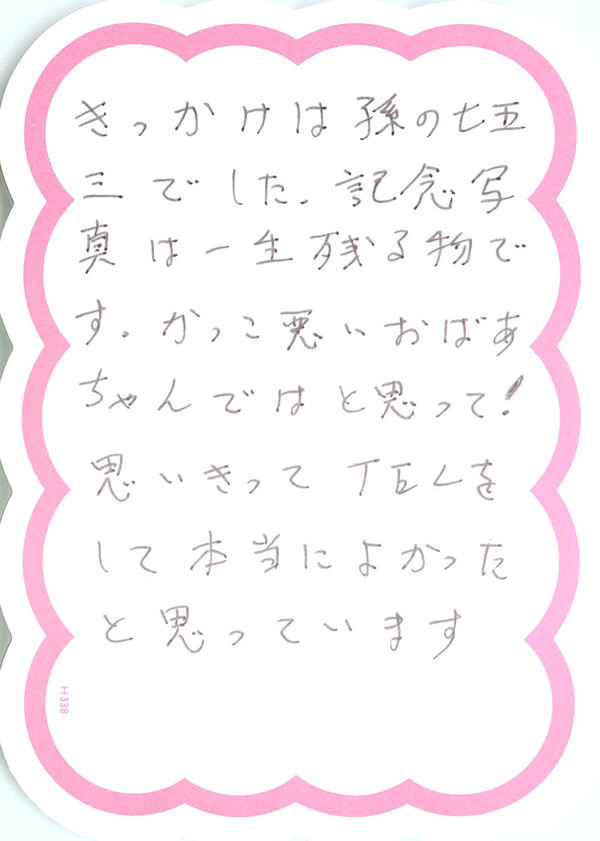 きっかけは孫の七五
三でした。記念写
真は一生残る物で
す。かっこ悪いおばあ
ちゃんではと思って!
思いきってTELを
して本当によかった
と思っています
H338